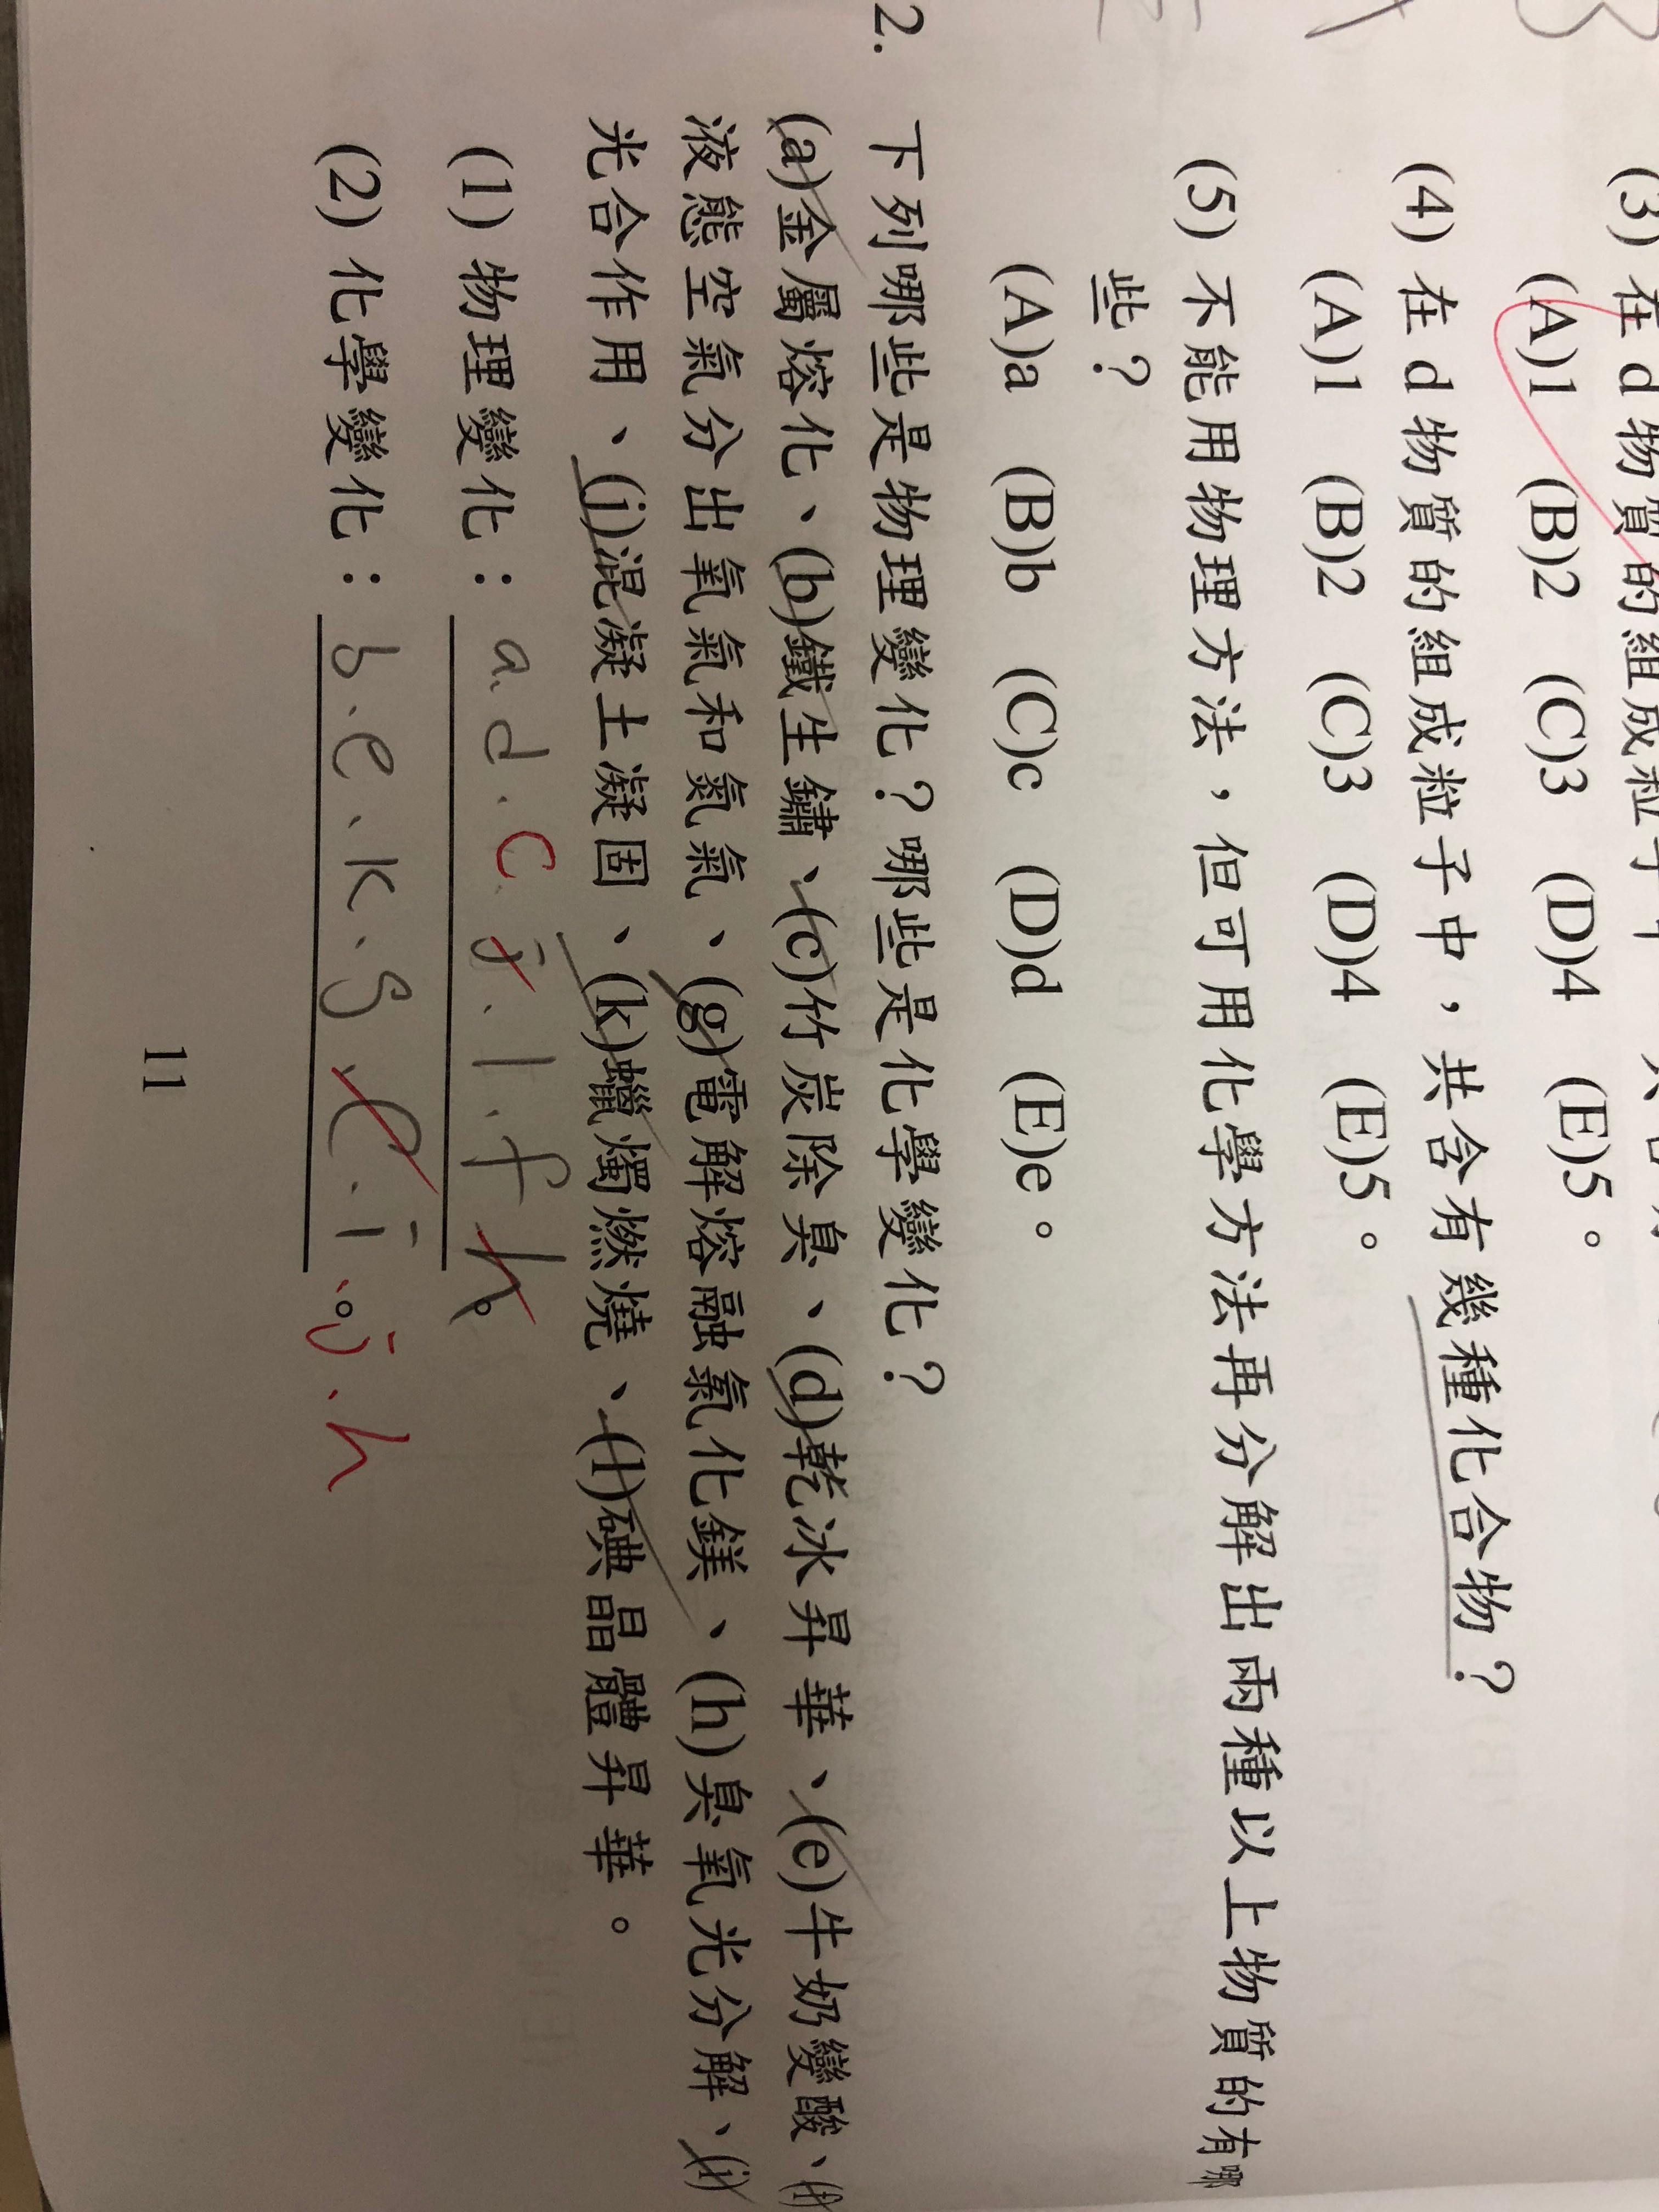 (3) 在 d 物質的組成粒子中
(A)1 (B)2 (C)3 (D)4 (E)5。
(4) 在 d 物質的組成粒子中，共含有幾種化合物？
(A)1 (B)2 (C)3 (D)4 (E)5。
(5) 不能用物理方法，但可用化學方法再分解出兩種以上物質的有哪
些？
(A)a (B)b (C)c (D)d (E)e。
2. 下列哪些是物理變化？哪些是化學變化？
(a)金屬熔化、(b)鐵生鏽、(c)竹炭除臭、(d)乾冰昇華、(e)牛奶變酸、(f)
液態空氣分出氧氣和氮氣、(g)電解熔融氯化鎂、(h)臭氧光分解、(i)
光合作用、(j)混凝土凝固、(k)蠟燭燃燒、(l)碘晶體昇華。
(1) 物理變化：a.d.c.j.l.f h。
(2) 化學變化：b.e、k.g、c.i、。j.h
11